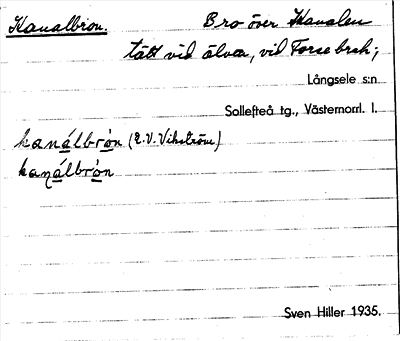 Kanalbron. Bro över Kanalen
tätt vid älven, vid Forse bruk;
Långsele s:n
Sollefteå tg., Västernorrl. l.
kanálbrón (E.V. Vikström)
kanálbrón
Sven Hiller 1935.